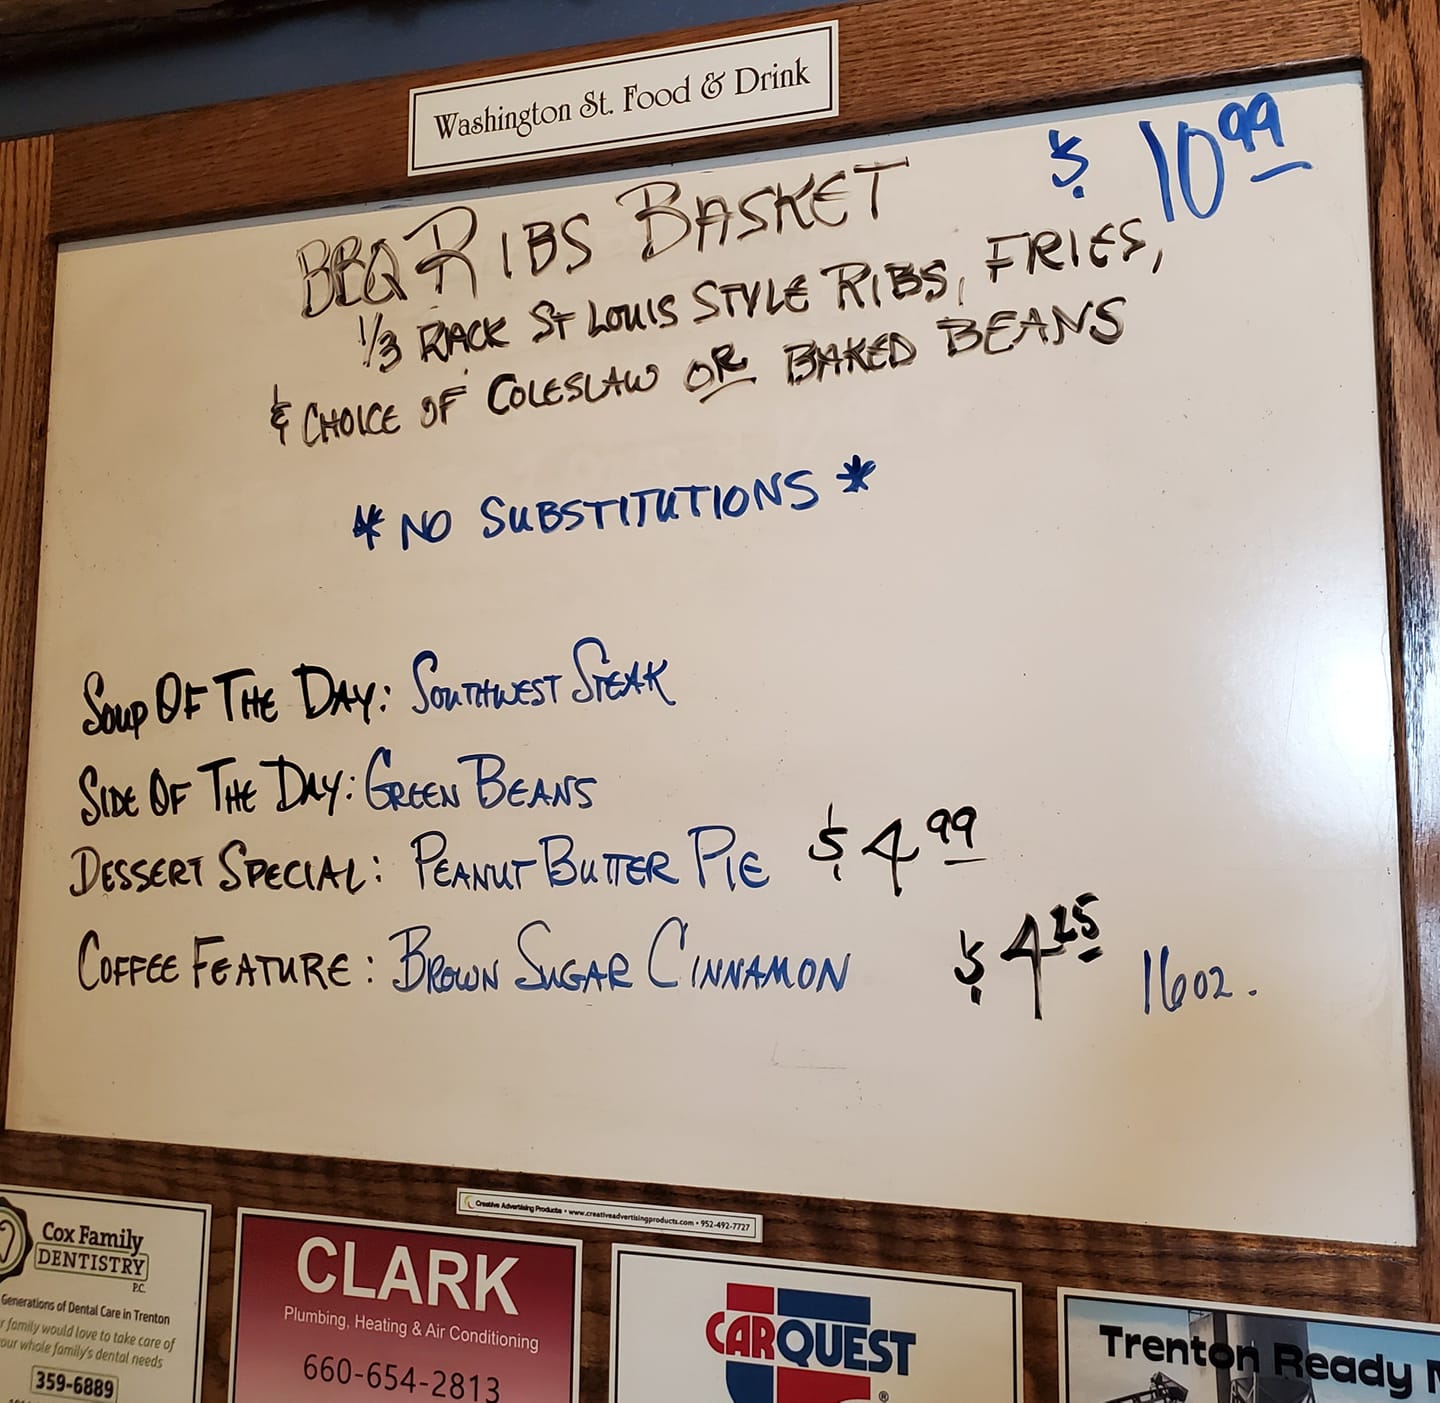 Washington St. Food & Drink
BBQ RIBS BASKET $ 10 99
1/3 RACK ST LOUIS STYLE RIBS, FRIES,
& CHOICE OF COLESLAW OR BAKED BEANS
* NO SUBSTITUTIONS *
SOUP OF THE DAY: SOUTHWEST STEAK
SIDE OF THE DAY: GREEN BEANS
DESSERT SPECIAL: PEANUT BUTTER PIE $ 4 99
COFFEE FEATURE: BROWN SUGAR CINNAMON $ 4 25 16oz.
Creative Advertising Products • www.creativeadvertisingproducts.com • 952-492-7727
Cox Family
DENTISTRY
P.C.
Generations of Dental Care in Trenton
family would love to take care of
your whole family's dental needs
359-6889
CLARK
Plumbing, Heating & Air Conditioning
660-654-2813
CARQUEST
®
Trenton Ready